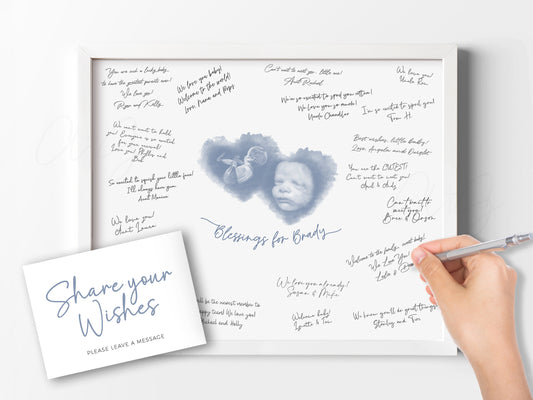 You are such a lucky baby,
to have the greatest parents ever!
We love you!
Ryan and Kelly
We love you baby!
Welcome to the world!
Love, Nana and Pops
Can't wait to meet you, little one!
Aunt Rachael
We love you!
Uncle Rex
We're so excited to spoil you rotten!
We love you so much!
Uncle Chandler
I'm so excited to spoil you!
Tom H.
We can't wait to hold
you! Everyone is so excited
for your arrival!
Love you! Phyllis and
Bill
Best wishes, little Baby!
Love, Angela and Dwight
You are the CUTEST!
Can't wait to meet you!
So excited to squish your little face!
I'll always love you,
Aunt Monica
Can't wait to
meet you!
Bree & Orson
We love you!
Aunt Laura
Blessings for Brady
Welcome to the family, sweet baby!
We Love You!
We love you already!
Susan & Mike
Share your
Wishes
PLEASE LEAVE A MESSAGE
be the newest member to
happy travel! We love you!
and Holly
Welcome baby!
Lynette & Tom
We know you'll do great things!
Stanley and Tom